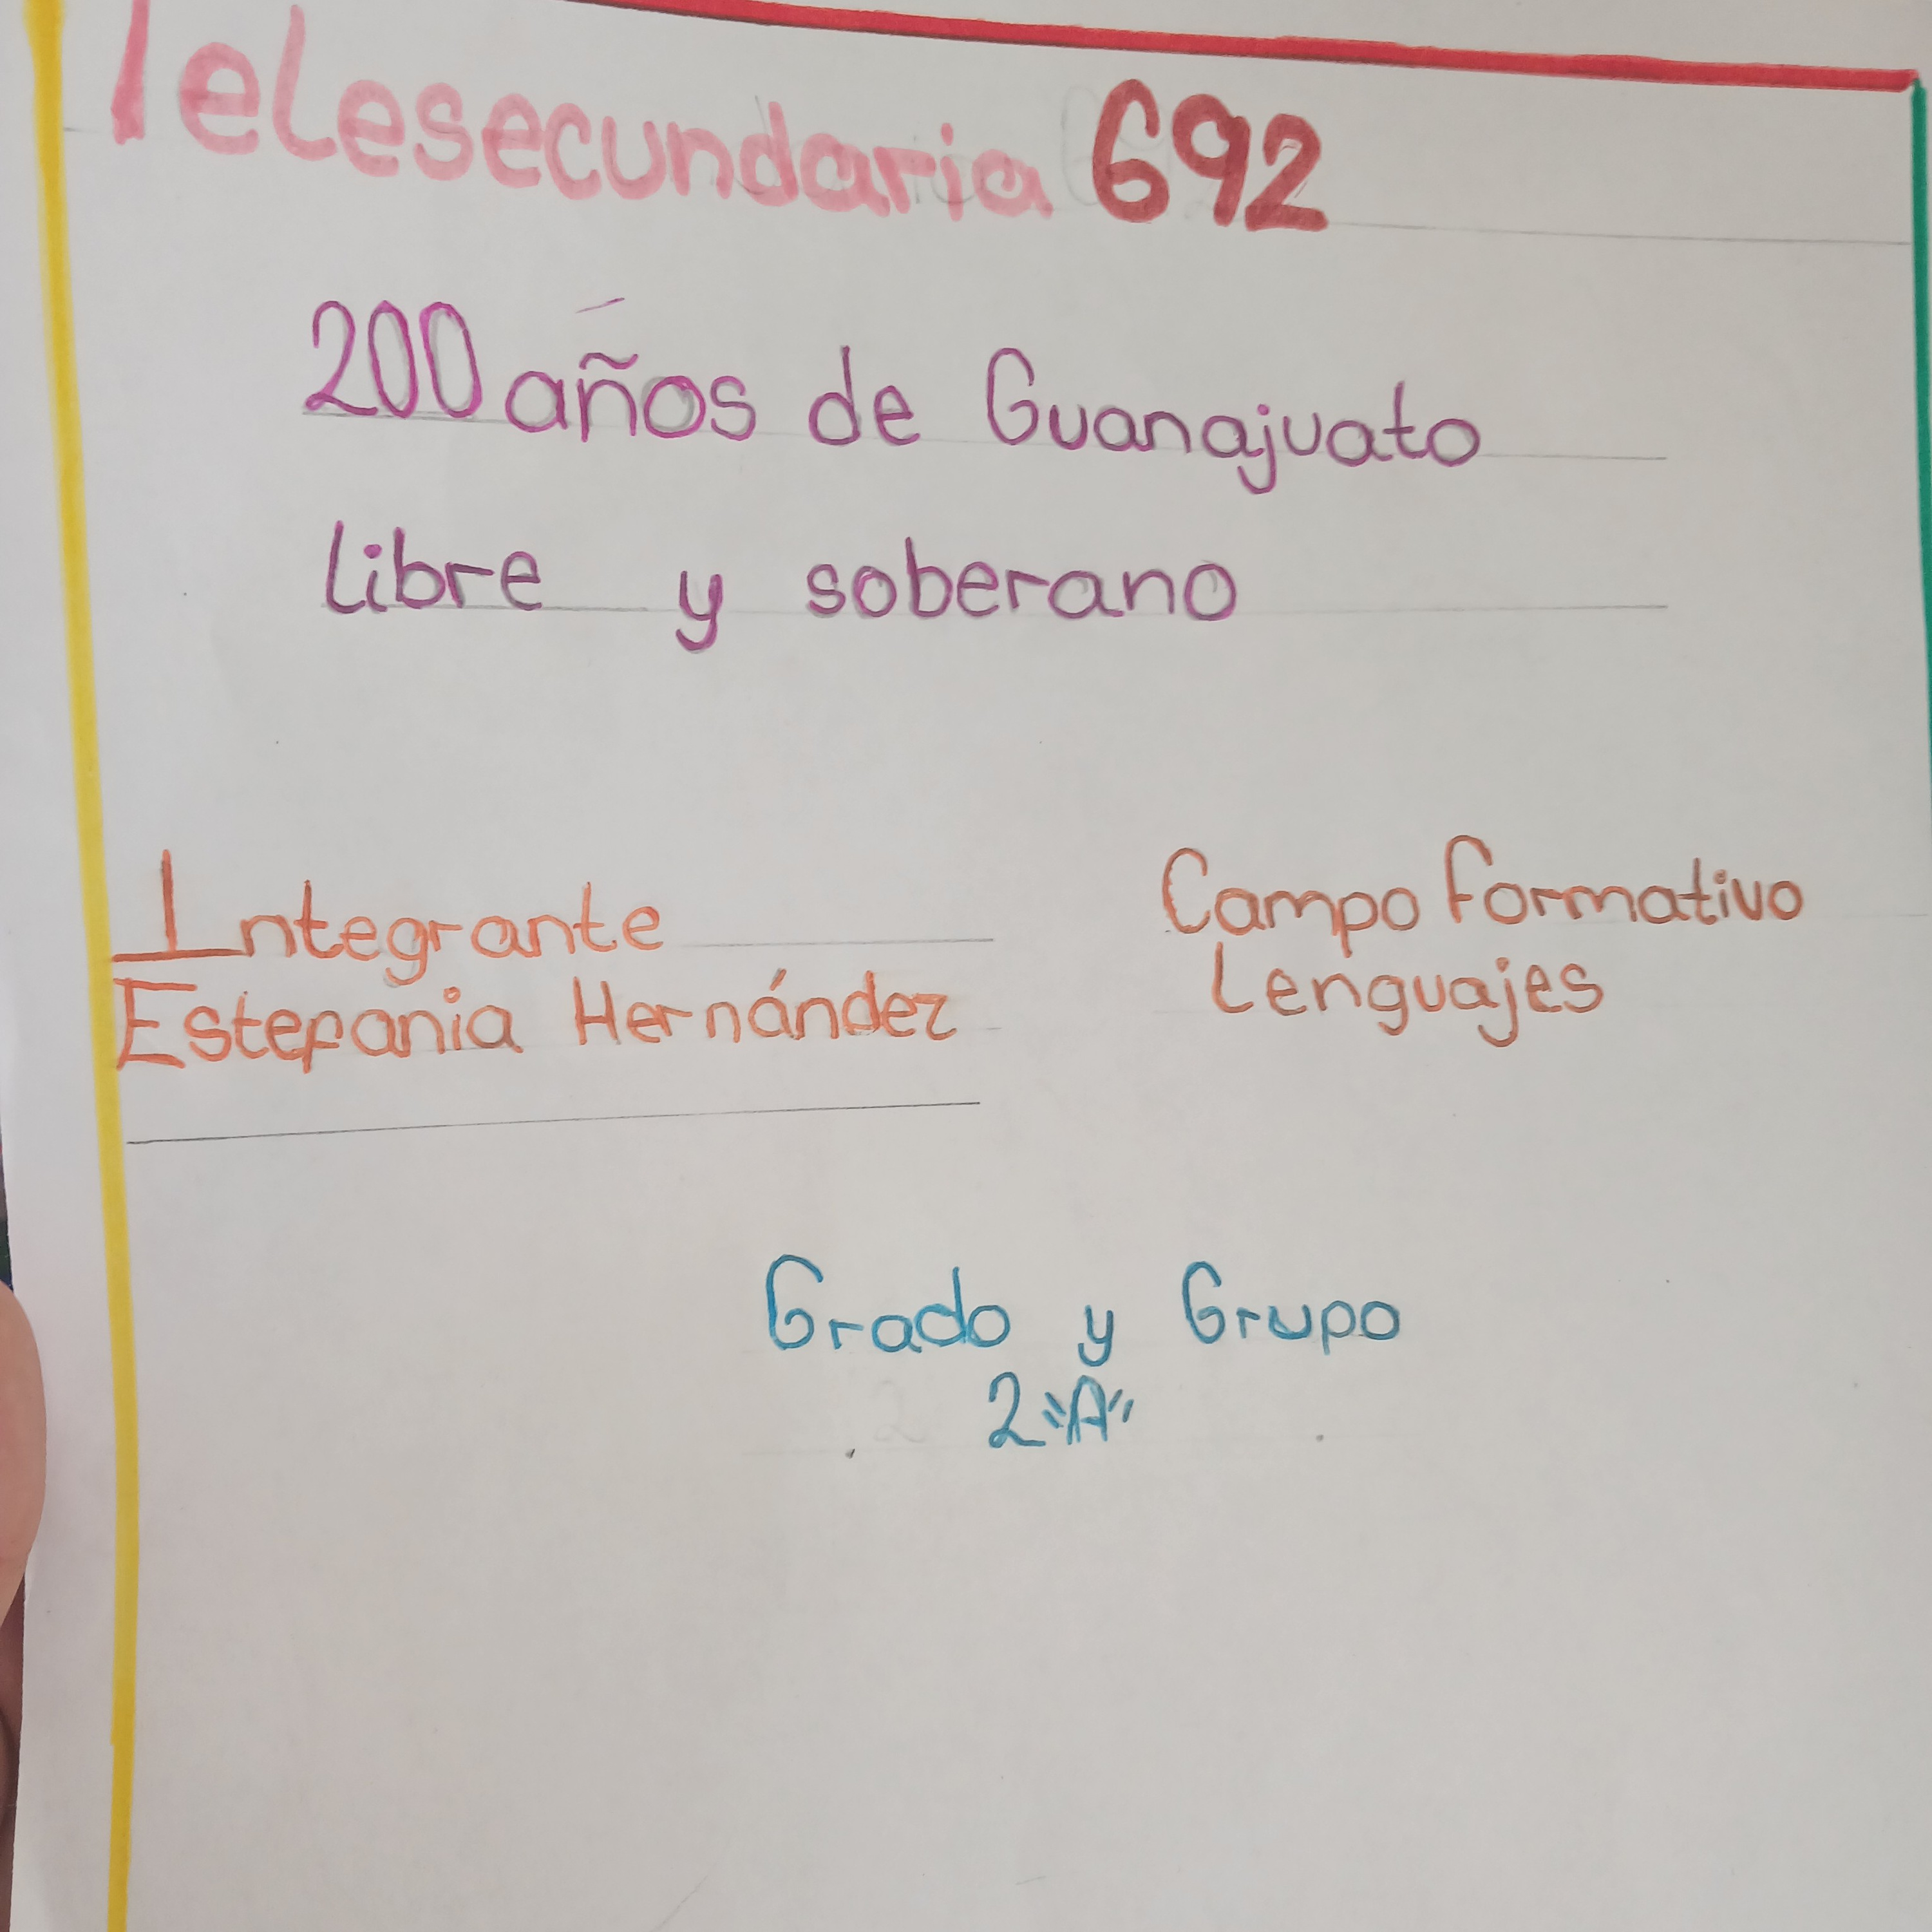 Telesecundaria 692
200 años de Guanajuato
libre y soberano
Integrante
Estefania Hernández
Campo formativo
Lenguajes
Grado y Grupo
2 "A"